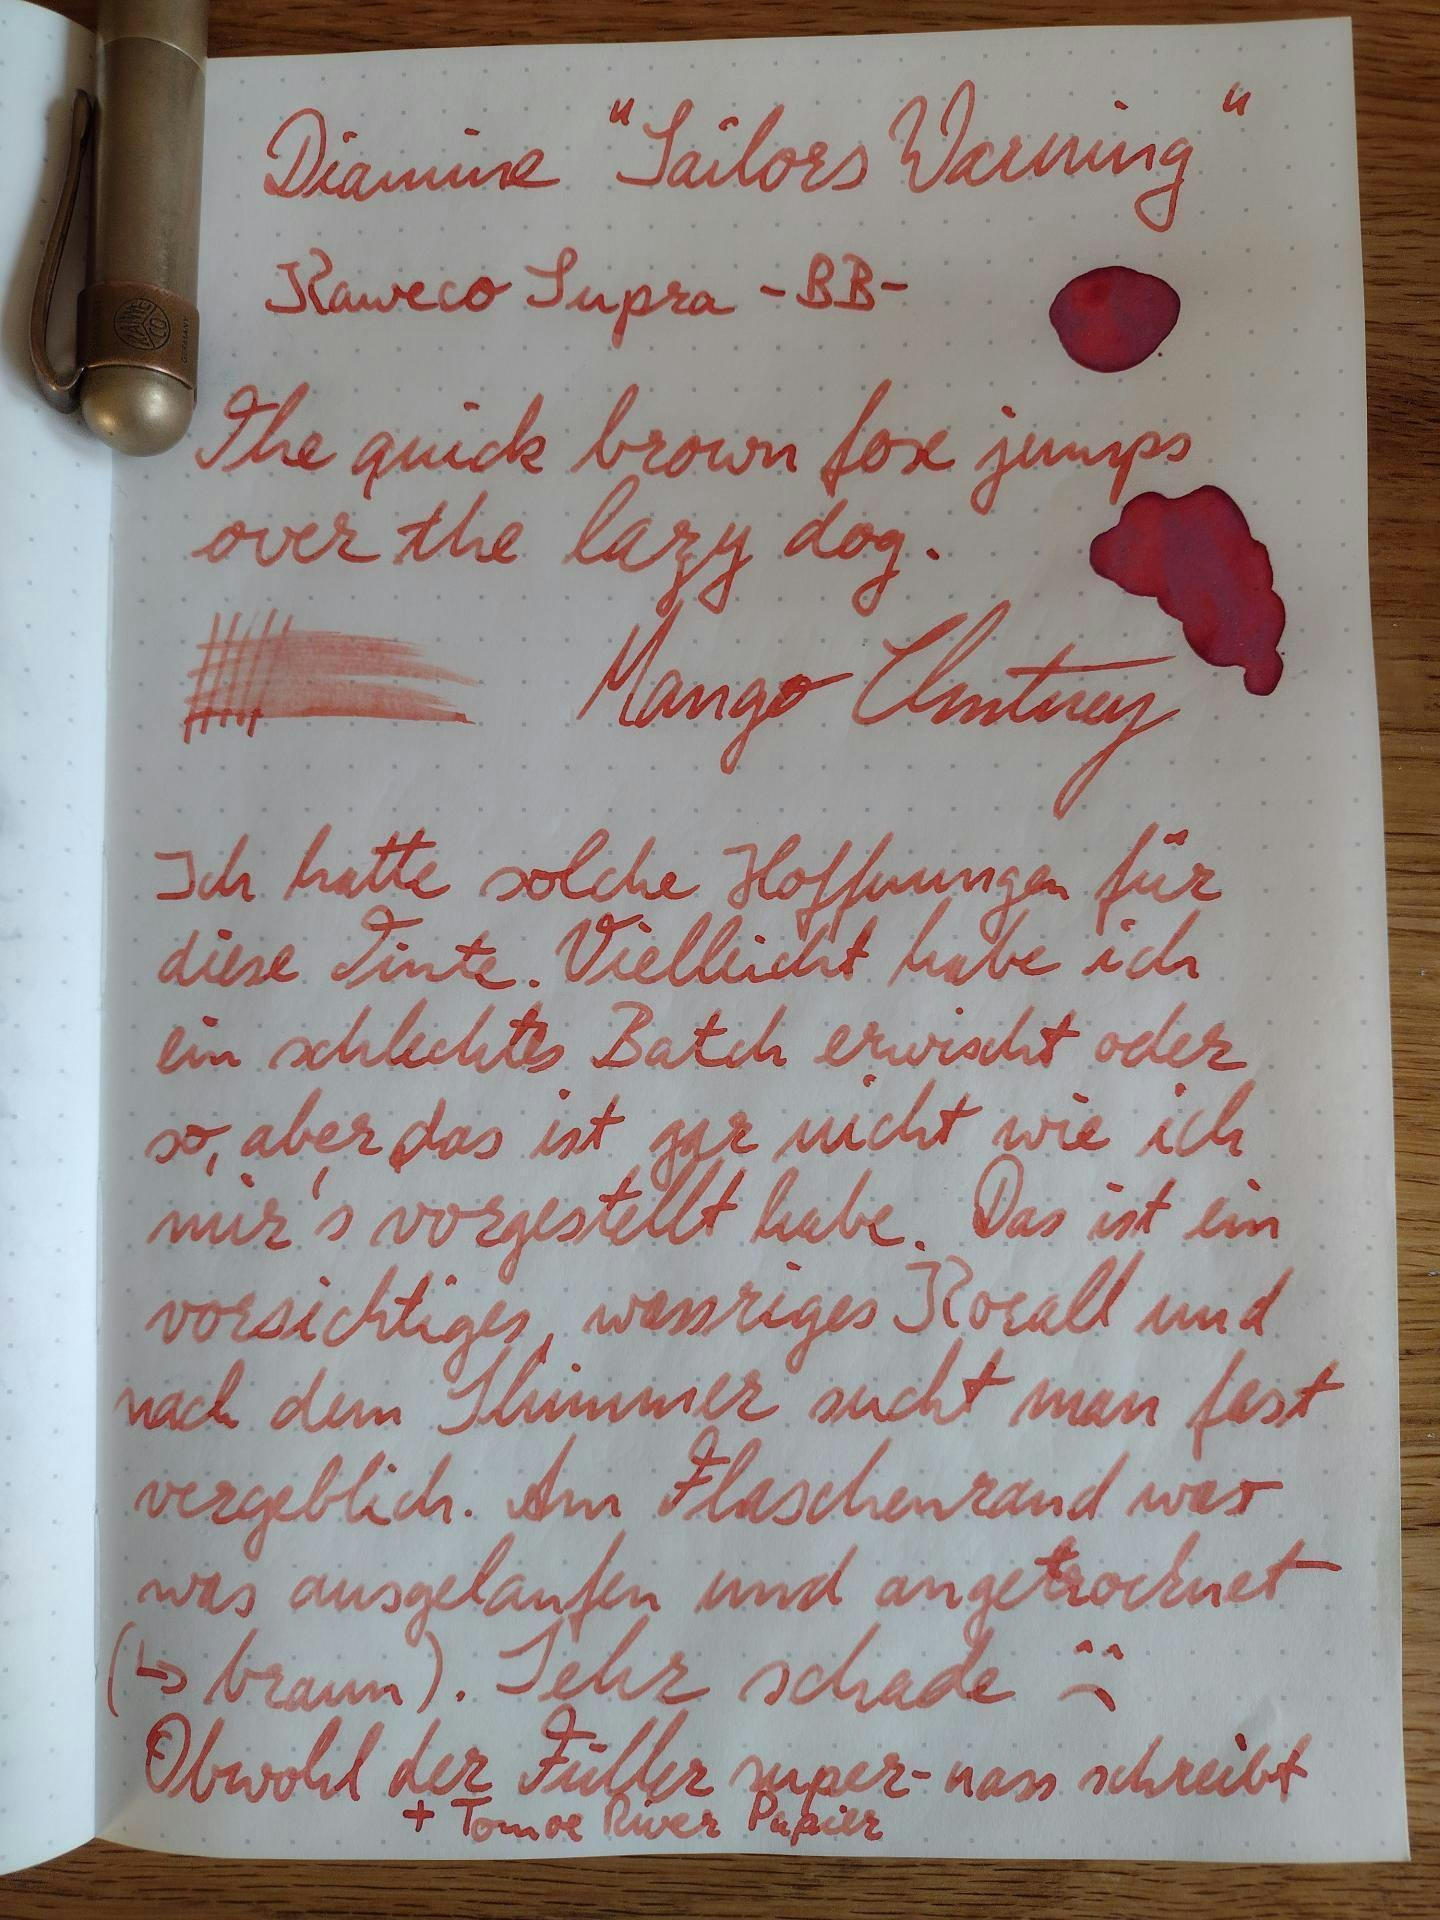 Diamine "Sailors Warning"
Kaweco Supra -BB-
KAWE
CO
GERMANY
The quick brown fox jumps
over the lazy dog.
Mango Chutney
Ich hatte solche Hoffnungen für
diese Tinte. Vielleicht habe ich
ein schlechtes Batch erwischt oder
so, aber das ist gar nicht wie ich
mir's vorgestellt habe. Das ist ein
vorsichtiges, wassriges Korall und
nach dem Shimmer sucht man fast
vergeblich. Am Flaschenrand war
was ausgelaufen und angetrocknet
(↳ braun). Sehr schade ☹
Obwohl der Füller super-nass schreibt
+ Tomoe River Papier